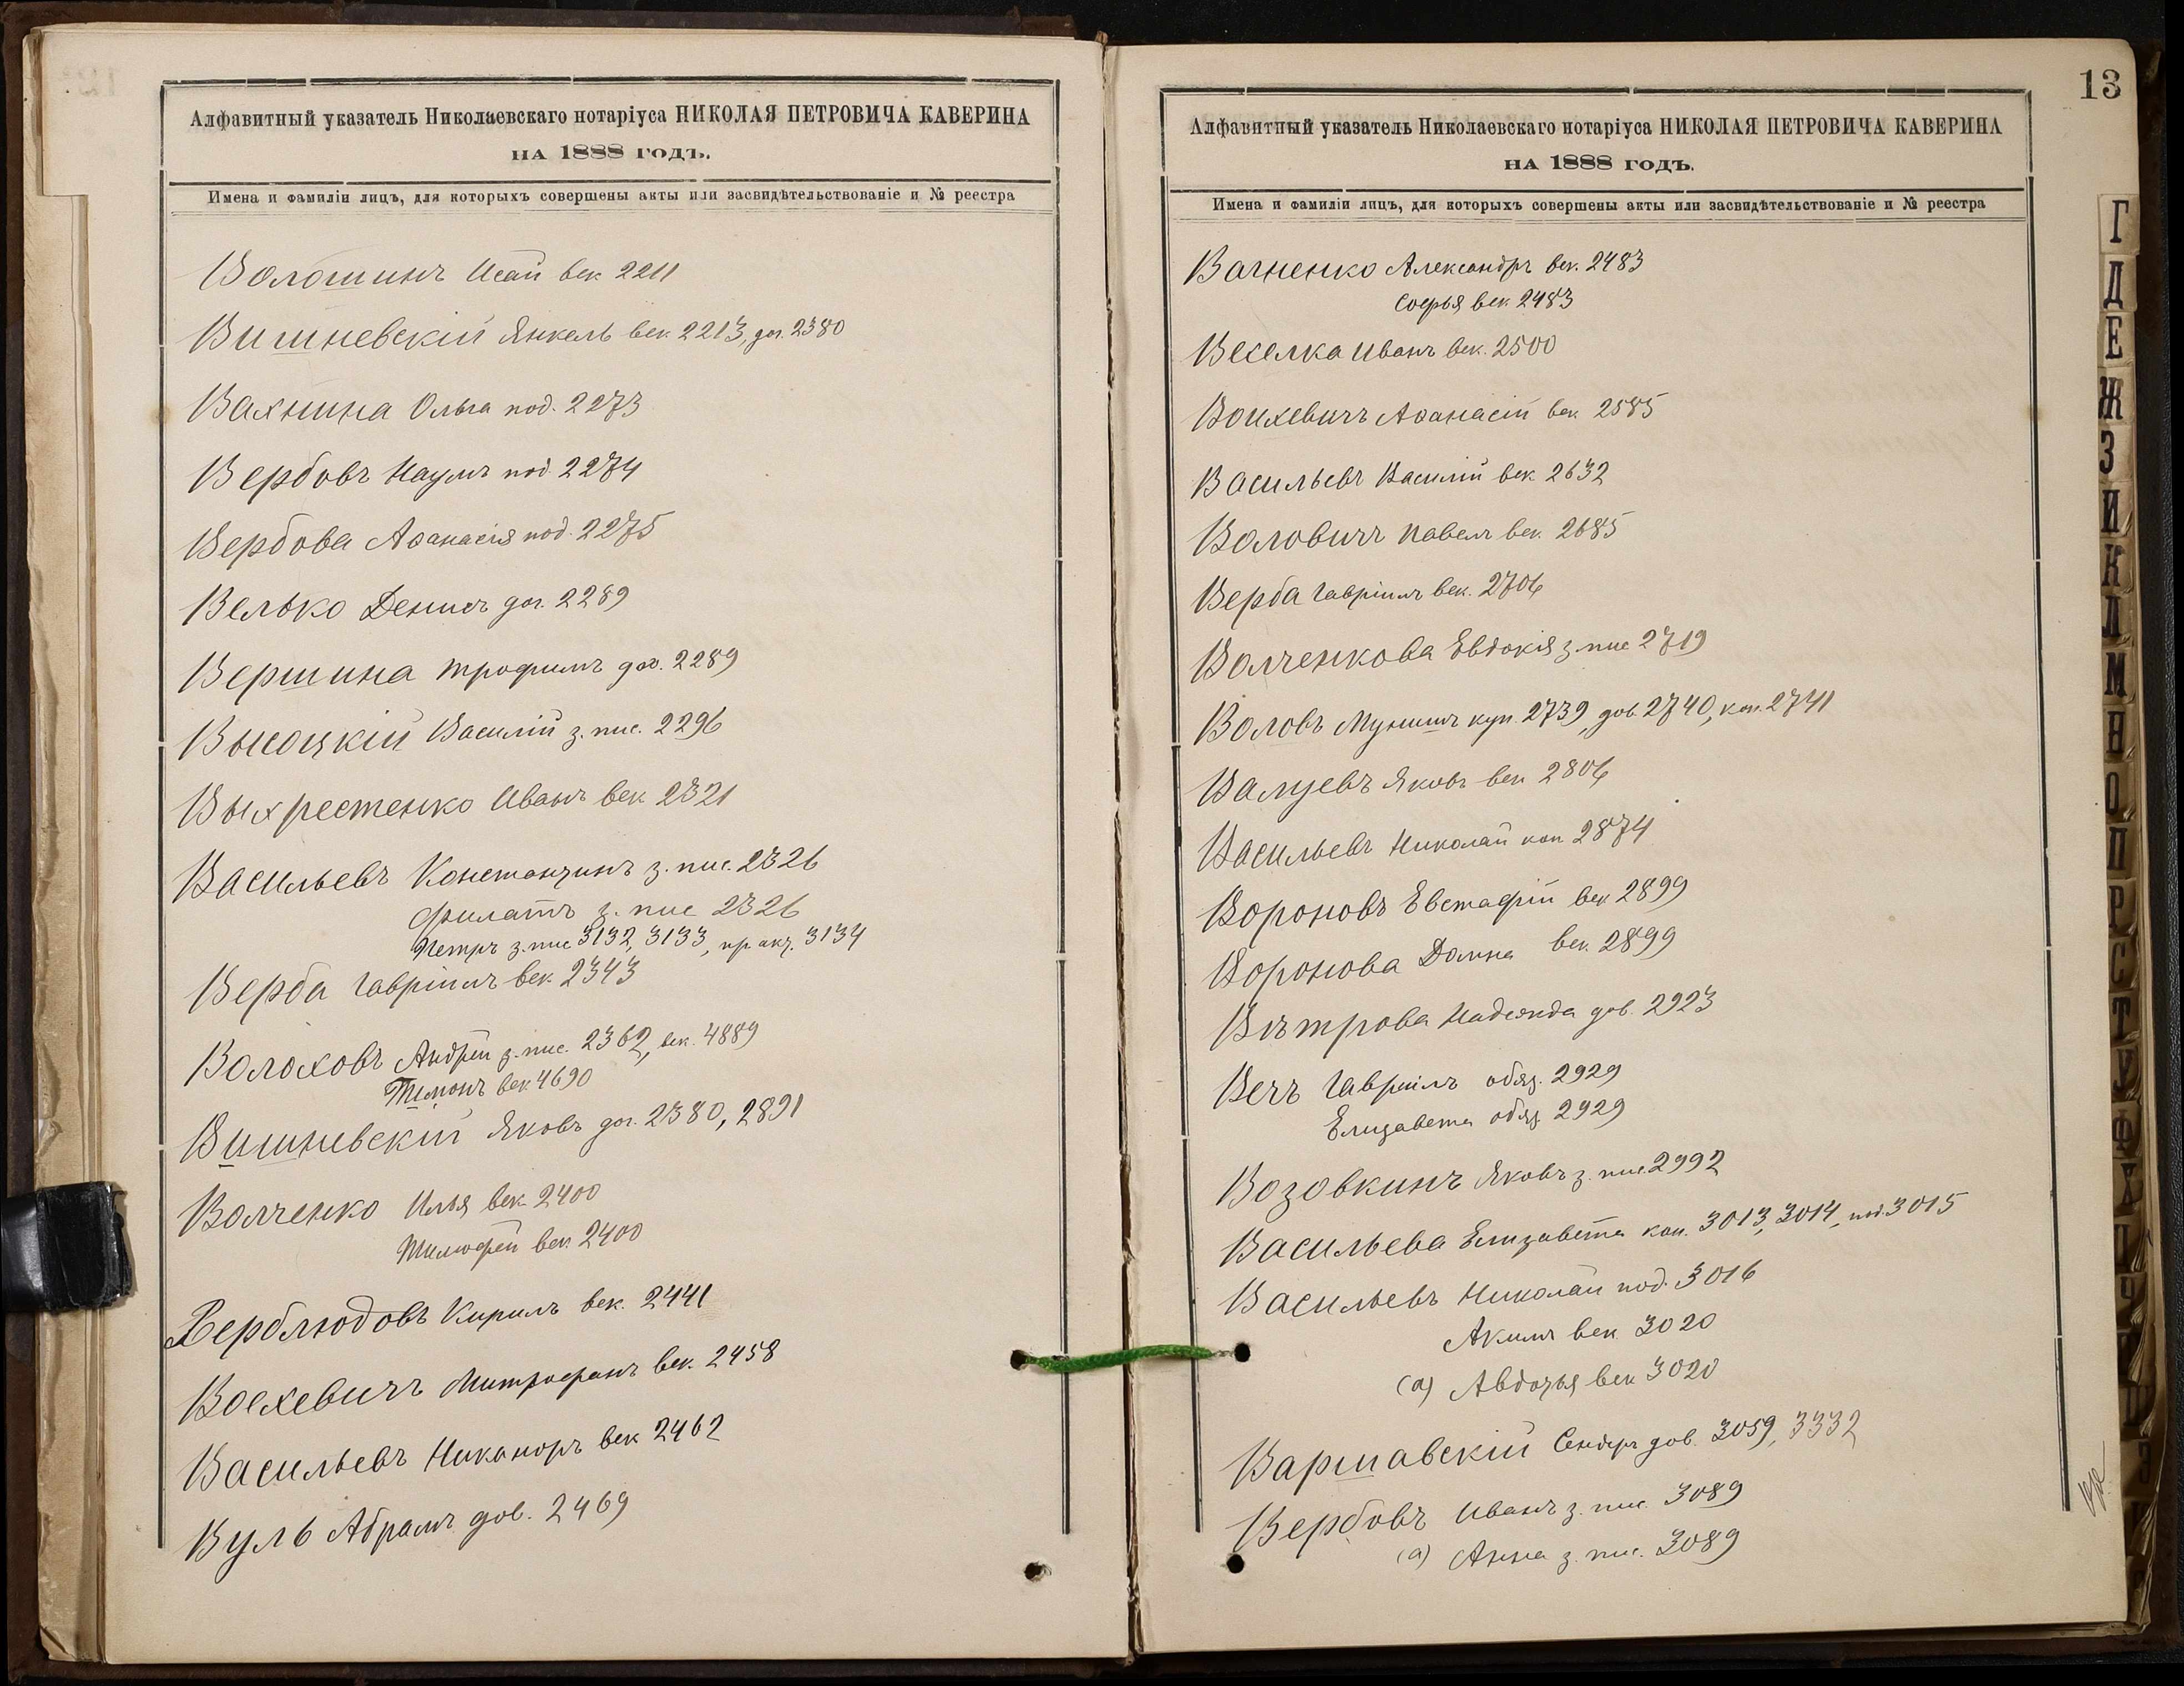 Алфавитный указатель Николаевскаго нотаріуса НИКОЛАЯ ПЕТРОВИЧА КАВЕРИНА
НА 1888 ГОДЪ.
Имена и фамиліи лицъ, для которыхъ совершены акты или засвидѣтельствованіе и № реестра
Волошинъ Исай век 2211
Вишневскій Янкель век. 2213, дог. 2380
Вахнина Ольга под. 2273
Вербовъ Наумъ под. 2274
Вербова Аѳанасія под. 2275
Велько Денисъ дог. 2289
Вершина Трофимъ дог. 2289
Высоцкій Василій з. пис. 2296
Выхрестенко Иванъ век 2321
Васильевъ Константинъ з. пис. 2326
Филатъ з. пис 2326
Петръ з. пис 3132, 3133, пр. акт. 3134
Верба Гавріилъ век. 2343
Волоховъ Андрей з. пис. 2362, век. 4889
век 4690
Вишневскій Яковъ дог. 2380, 2891
Волченко Илья век. 2400
Тимофей век 2400
Верблюдовъ Кирилъ век. 2441
Воехевичъ Митрофанъ век. 2458
Васильевъ Никаноръ век 2462
Вуль Абрамъ дов. 2469
13
Алфавитный указатель Николаевскаго нотаріуса НИКОЛАЯ ПЕТРОВИЧА КАВЕРИНА
НА 1888 ГОДЪ.
Имена и фамиліи лицъ, для которыхъ совершены акты или засвидѣтельствованіе и № реестра
Вагненко Александръ век. 2483
Софья век. 2483
Веселка Иванъ век. 2500
Воихевичъ Аѳанасій век 2585
Васильевъ Василій век 2632
Воловичъ Павелъ век. 2685
Верба Гавріилъ век. 2706
Волченкова Евдокія з. пис 2719
Воловъ куп. 2739, дов. 2740, коп. 2741
Валуевъ Яковъ век 2806
Васильевъ Николай коп 2874
Вороновъ Евстафій век 2899
Воронова Домна век. 2899
Вѣтрова Надежда дов. 2923
Вечъ Гавріилъ обяз. 2929
Елизавета обяз. 2929
Возовкинъ Яковъ з. пис 2992
Васильева Елизавета коп. 3013, 3014, под. 3015
Васильевъ Николай под. 3016
Акимъ век 3020
(а) Авдотья век 3020
Варшавскій Сендеръ дов. 3059, 3332
Вербовъ Иванъ з. пис. 3089
(а) Анна з. пис. 3089
Г
Д
Е
Ж
З
И
К
Л
М
Н
О
П
Р
С
Т
У
Ф
Х